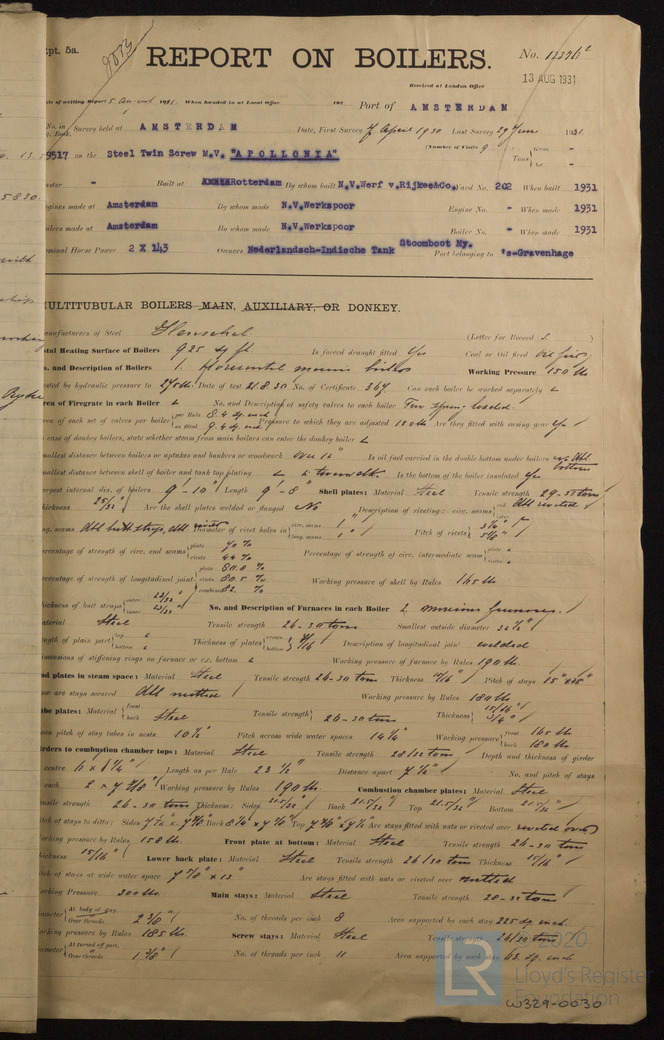 pt. 5a.
REPORT ON BOILERS.
No.
Received at London Office
13 AUG 1931
te of writing Report 193 When handed in at Local Office 193 Port of AMSTERDAM
No. in Survey held at AMSTERDAM Date, First Survey 7 April 1930 Last Survey 29 June 1931
g. Book. (Number of Visits 9) Gross -
9517 on the Steel Twin Screw M.V. "APOLLONIA" Tons Net -
ster - Built at Rotterdam By whom built N.V.Werf v.Rijkee&Co. Yard No. 202 When built 1931
gines made at Amsterdam By whom made N.V.Werkspoor Engine No. - When made 1931
ilers made at Amsterdam By whom made N.V.Werkspoor Boiler No. - When made 1931
ominal Horse Power 2 X 143 Owners Nederlandsch-Indische Tank Stoomboot My. Port belonging to 's-Gravenhage
ULTITUBULAR BOILERS MAIN, AUXILIARY, OR DONKEY.
anufacturers of Steel Henschel (Letter for Record S )
otal Heating Surface of Boilers 925 sq ft Is forced draught fitted Yes Coal or Oil fired Oil fired
o. and Description of Boilers 1 Horizontal marine boiler Working Pressure 150 lb
ested by hydraulic pressure to 275 lb Date of test 21.8.30 No. of Certificate 367 Can each boiler be worked separately
rea of Firegrate in each Boiler No. and Description of safety valves to each boiler Two spring loaded
rea of each set of valves per boiler per Rule 8.4 sq. inch as fitted 9.4 sq. inch Pressure to which they are adjusted 150 lb Are they fitted with easing gear Yes
case of donkey boilers, state whether steam from main boilers can enter the donkey boiler
mallest distance between boilers or uptakes and bunkers or woodwork over 12" Is oil fuel carried in the double bottom under boilers
mallest distance between shell of boiler and tank top plating Is the bottom of the boiler insulated Yes
argest internal dia. of boilers 9'-10" Length 9'-8" Shell plates: Material Steel Tensile strength 29-33 tons
hickness 25/32" Are the shell plates welded or flanged No Description of riveting: circ. seams end Dbl riveted
ng. seams Dbl butt straps, dbl Diameter of rivet holes in circ. seams 1" long. seams 1" Pitch of rivets
ercentage of strength of circ. end seams plate 70 % rivets 44 % Percentage of strength of circ. intermediate seam plate rivets
ercentage of strength of longitudinal joint plate 80.0 % rivets 80.5 % combined 82. % Working pressure of shell by Rules 165 lb
hickness of butt straps outer 23/32" inner 23/32" No. and Description of Furnaces in each Boiler 2 Morison furnaces
aterial Steel Tensile strength 26-30 tons Smallest outside diameter 32 1/2"
ngth of plain part top bottom Thickness of plates crown bottom Description of longitudinal joint welded
imensions of stiffening rings on furnace or c.c. bottom Working pressure of furnace by Rules 190 lb.
nd plates in steam space: Material Steel Tensile strength 26-30 tons Thickness Pitch of stays
ow are stays secured Dbl nutted Working pressure by Rules 180 lb
ube plates: Material front back Steel Tensile strength 26-30 tons Thickness 15/16" 3/4"
ean pitch of stay tubes in nests 10 1/2" Pitch across wide water spaces 14 1/4" Working pressure front 165 lb back 180 lb
irders to combustion chamber tops: Material Steel Tensile strength 28/32 tons Depth and thickness of girder
centre Length as per Rule 23 1/2" Distance apart 7 1/2" No. and pitch of stays
each 2 x 7 7/8" Working pressure by Rules 190 lb. Combustion chamber plates: Material Steel
nsile strength 26-30 tons Thickness: Sides 21.5/32" Back 21.5/32" Top 21.5/32" Bottom 21.5/32"
tch of stays to ditto: Sides Back Top Are stays fitted with nuts or riveted over riveted over
orking pressure by Rules 150 lb. Front plate at bottom: Material Steel Tensile strength 26-30 tons
hickness 15/16" Lower back plate: Material Steel Tensile strength 26/30 tons Thickness
tch of stays at wide water space Are stays fitted with nuts or riveted over nutted
orking Pressure 300 lb. Main stays: Material Steel Tensile strength 28-32 tons
iameter At body of stay, Over threads 2 3/8" No. of threads per inch 8 Area supported by each stay 225 sq. inch.
orking pressure by Rules 185 lb. Screw stays: Material Steel Tensile strength 26/30 tons
iameter At turned off part, Over threads 1 3/8" No. of threads per inch 11 Area supported by each stay 63 sq. inch
LR
© 2020
Lloyd's Register
Foundation
W329-0030